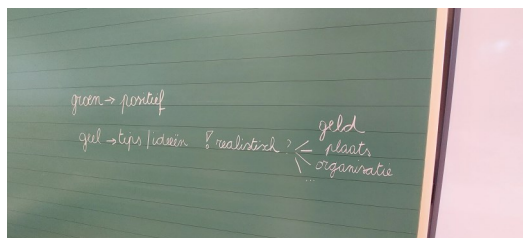 groen → positief
geel → tips / ideeën ! realistisch ? geld
plaats
organisatie
...